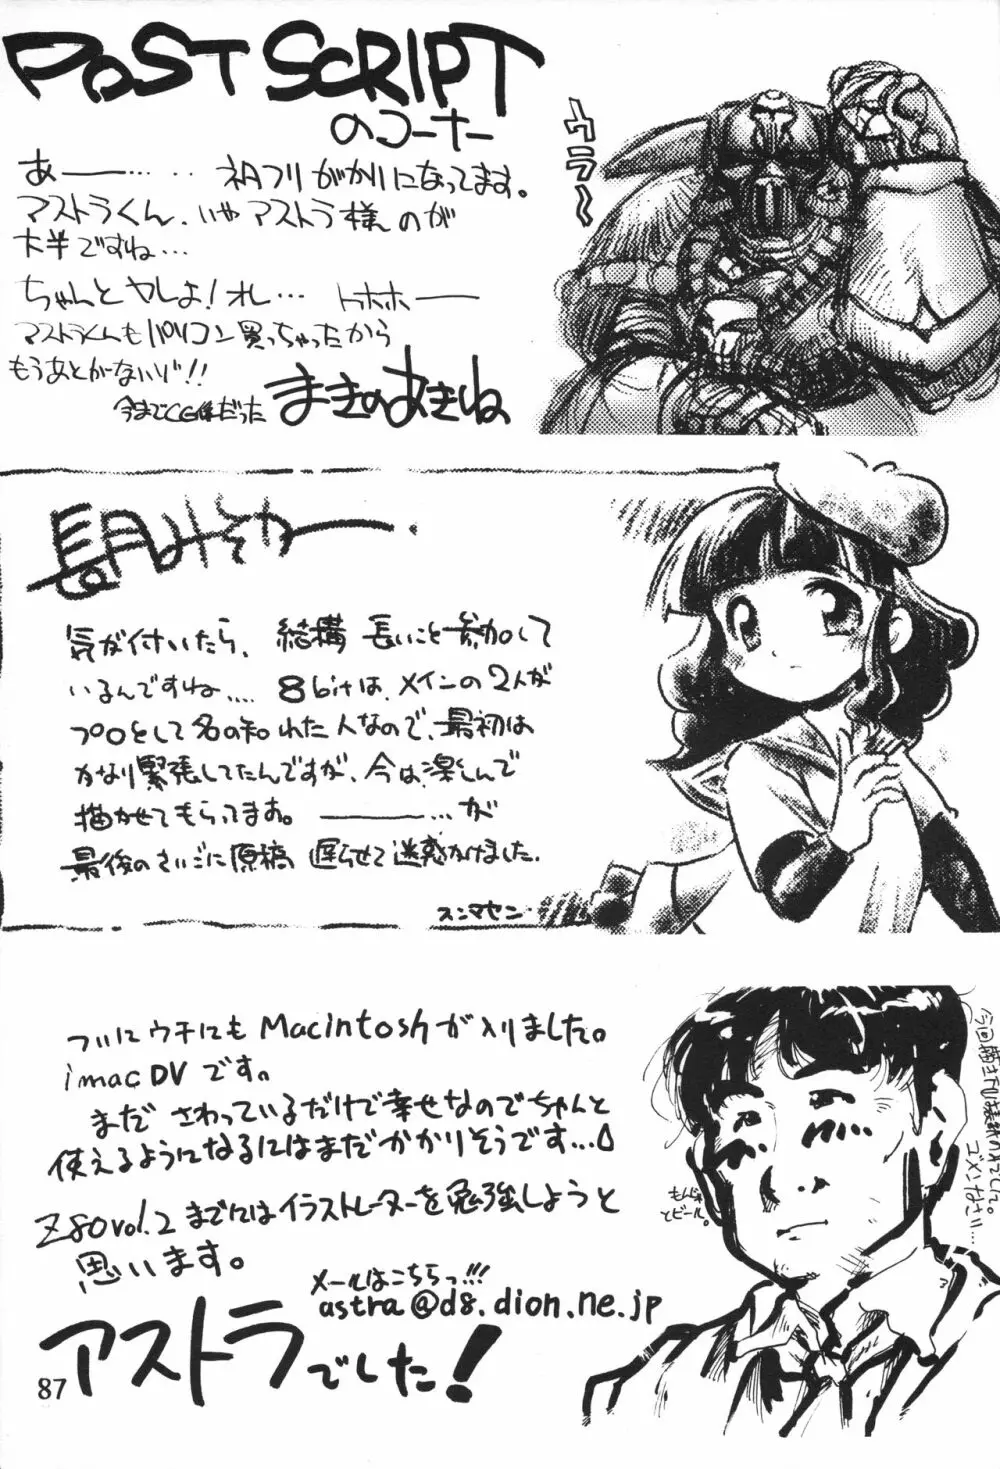 POST SCRIPT
のコーナー
ウラ〜
あ——…‥ 神フリがかりになってます。
アストラくん、いやアストラ様のが
大半ですね…
ちゃんとヤレよ!オレ… トホホ——
アストラくんもパソコン買っちゃったから
もうあとがないゾ!!
今まで
だった
まきのあきね
長月みそか
気が付いたら、結構 長いこと参加して
いるんですね…. 8bitは、メインの2人が
プロとして名の知れた人なので、最初は
かなり緊張してたんですが、今は楽しんで
描かせてもらってます。———…が
最後のさいごに原稿 遅らせて迷惑かけました.
スンマセン
ついにウチにも Macintoshが入りました。
imac DV です。
まだ さわっているだけで幸せなのでちゃんと
使えるようになるにはまだかかりそうです…
Z80 vol.2 までにはイラストレーターを勉強しようと
思います。
メールはこちらっ!!!
astra@d8.dion.ne.jp
アストラでした!
もんじゃ
とビール。
ゴメンなさい…
87